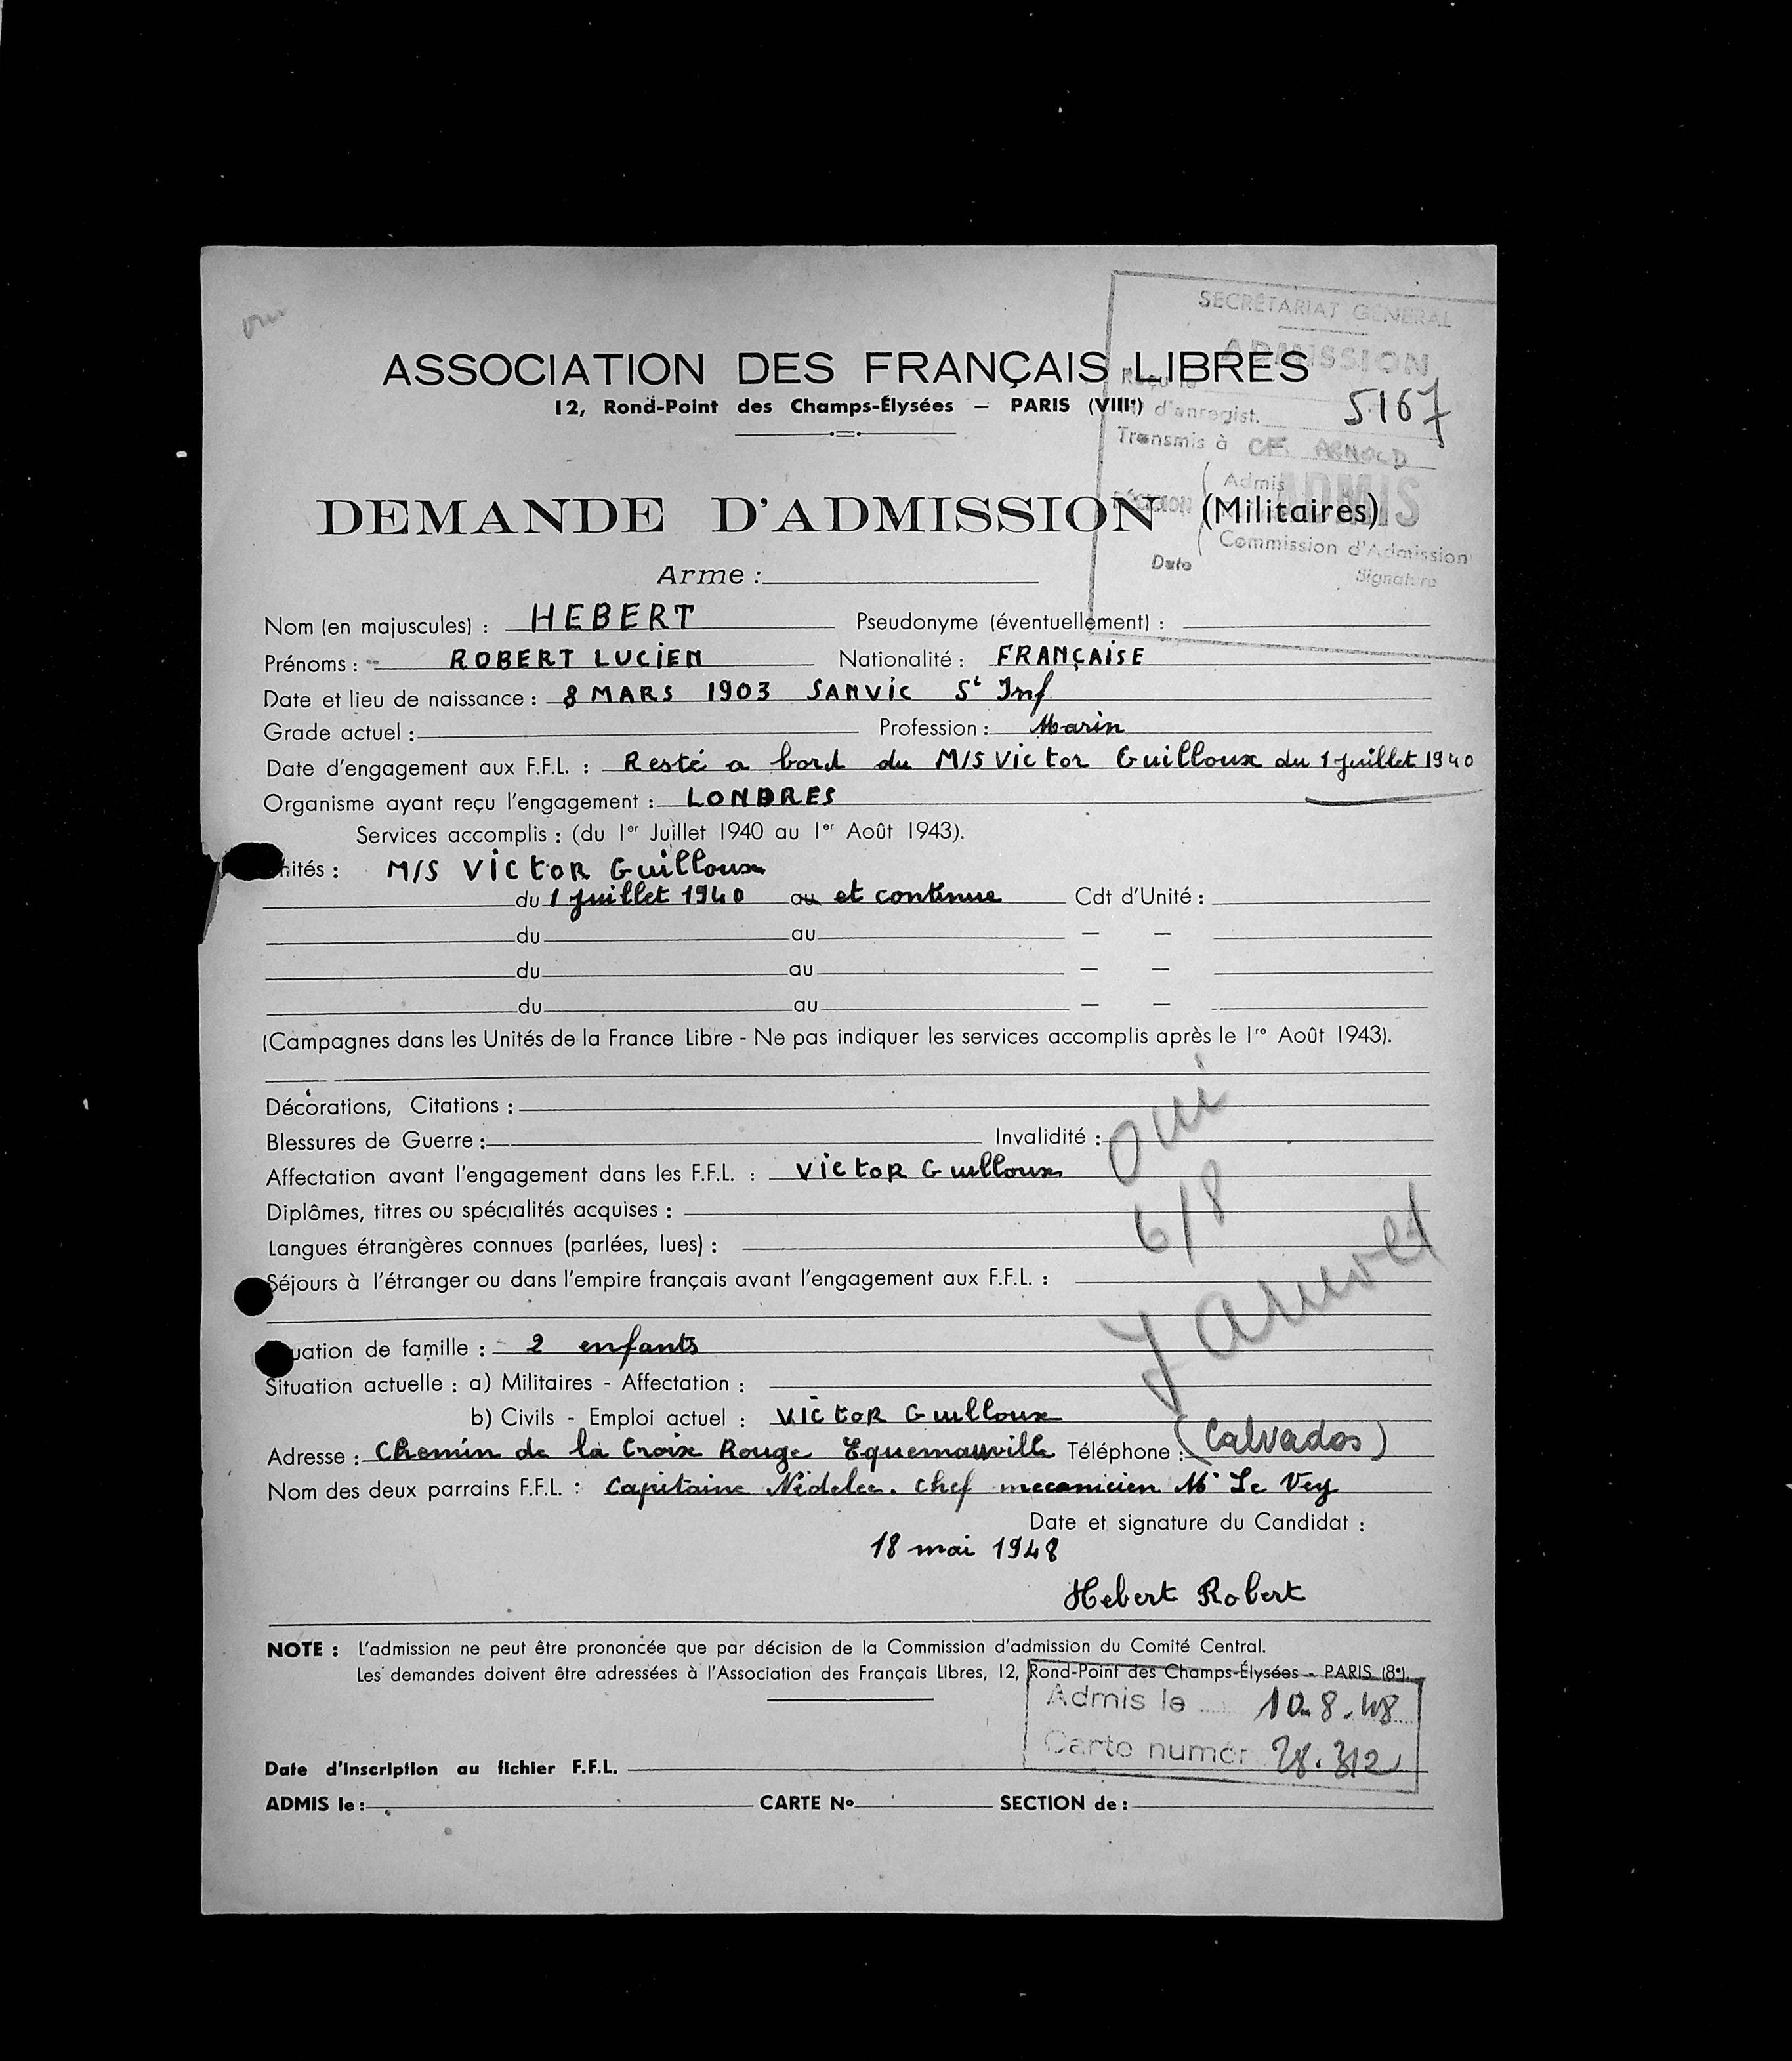 oui
SECRÉTARIAT GÉNÉRAL
ADMISSION
ASSOCIATION DES FRANÇAIS LIBRES
Reçu le
12, Rond-Point des Champs-Élysées — PARIS (VIIIe)
d'enregist. 5167
Transmis à CF. ARNOLD
Admis
ADMIS
DÉCISION
DEMANDE D'ADMISSION (Militaires)
Commission d'Admission
Date
Signature
Arme :
Nom (en majuscules) : HEBERT Pseudonyme (éventuellement) :
Prénoms : ROBERT LUCIEN Nationalité : FRANÇAISE
Date et lieu de naissance : 8 MARS 1903 SANVIC St Inf
Grade actuel : Profession : Marin
Date d'engagement aux F.F.L. : Resté a bord du M/S Victor Guilloux du 1 juillet 1940
Organisme ayant reçu l'engagement : LONDRES
Services accomplis : (du 1er Juillet 1940 au 1er Août 1943).
nités : M/S VICTOR Guilloux
du 1 juillet 1940 au et continue Cdt d'Unité :
du au — —
du au — —
du au — —
(Campagnes dans les Unités de la France Libre - Ne pas indiquer les services accomplis après le 1re Août 1943).
Décorations, Citations :
Blessures de Guerre : Invalidité :
oui
Affectation avant l'engagement dans les F.F.L. : VICTOR Guilloux
Diplômes, titres ou spécialités acquises :
6/8
Langues étrangères connues (parlées, lues) :
Séjours à l'étranger ou dans l'empire français avant l'engagement aux F.F.L. :
J Arnold
uation de famille : 2 enfants
Situation actuelle : a) Militaires - Affectation :
b) Civils - Emploi actuel : VICTOR Guilloux
Adresse : Chemin de la Croix Rouge Equemauville Téléphone : (Calvados)
Nom des deux parrains F.F.L. : Capitaine Nédelec. chef mecanicien Mr Le Vey
Date et signature du Candidat :
18 mai 1948
Hebert Robert
NOTE : L'admission ne peut être prononcée que par décision de la Commission d'admission du Comité Central.
Les demandes doivent être adressées à l'Association des Français Libres, 12, Rond-Point des Champs-Élysées - PARIS (8e).
Admis le 10.8.48
Carte numér 28.312
Date d'inscription au fichier F.F.L.
ADMIS le : CARTE No SECTION de :